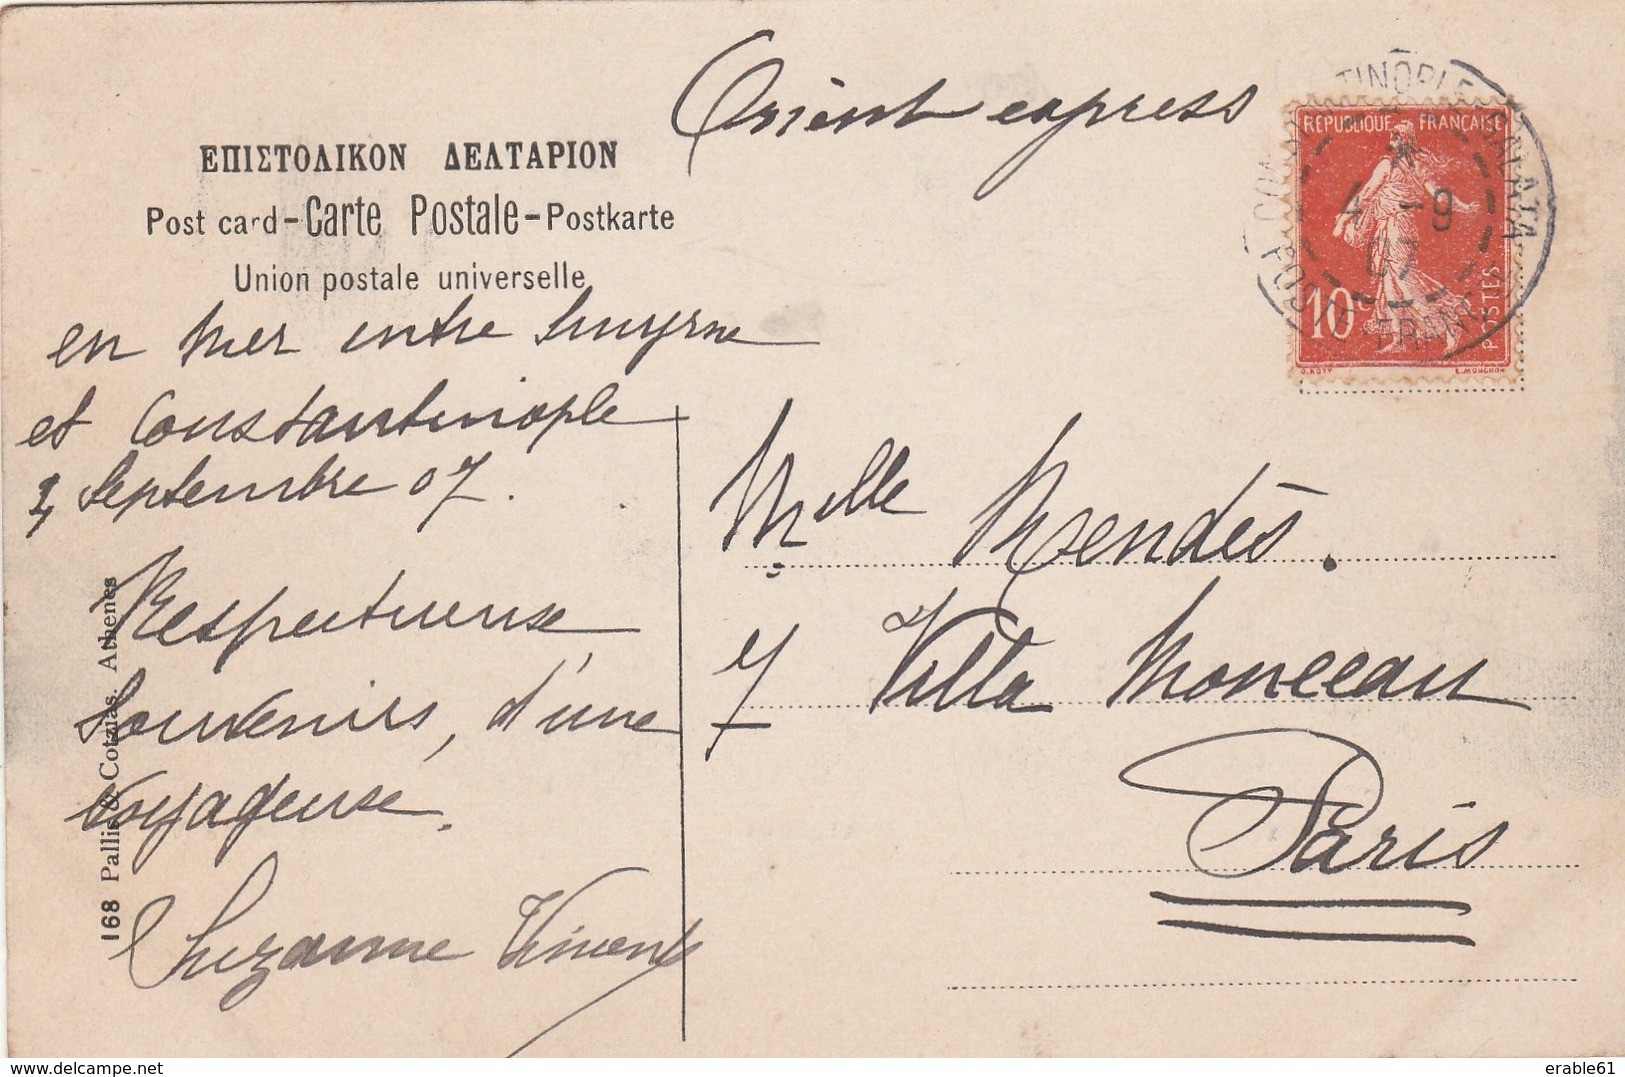 Orient express
ΕΠΙΣΤΟΛΙΚΟΝ ΔΕΛΤΑΡΙΟΝ
Post card - Carte Postale - Postkarte
Union postale universelle
en mer entre Smyrne
et Constantinople
4 Septembre 07.
Respectueuse
Souvenirs, d'une
voyageuse.
Suzanne Vincent
168 Pallis & Cotzias, Athenes
REPUBLIQUE FRANÇAISE
10c
POSTES
O. ROTY
L. MOUCHON
TINOPLE-GALATA
4 -9
07
POSTE FRANÇ
Melle Mendès.
7 Villa Monceau
Paris
erable61